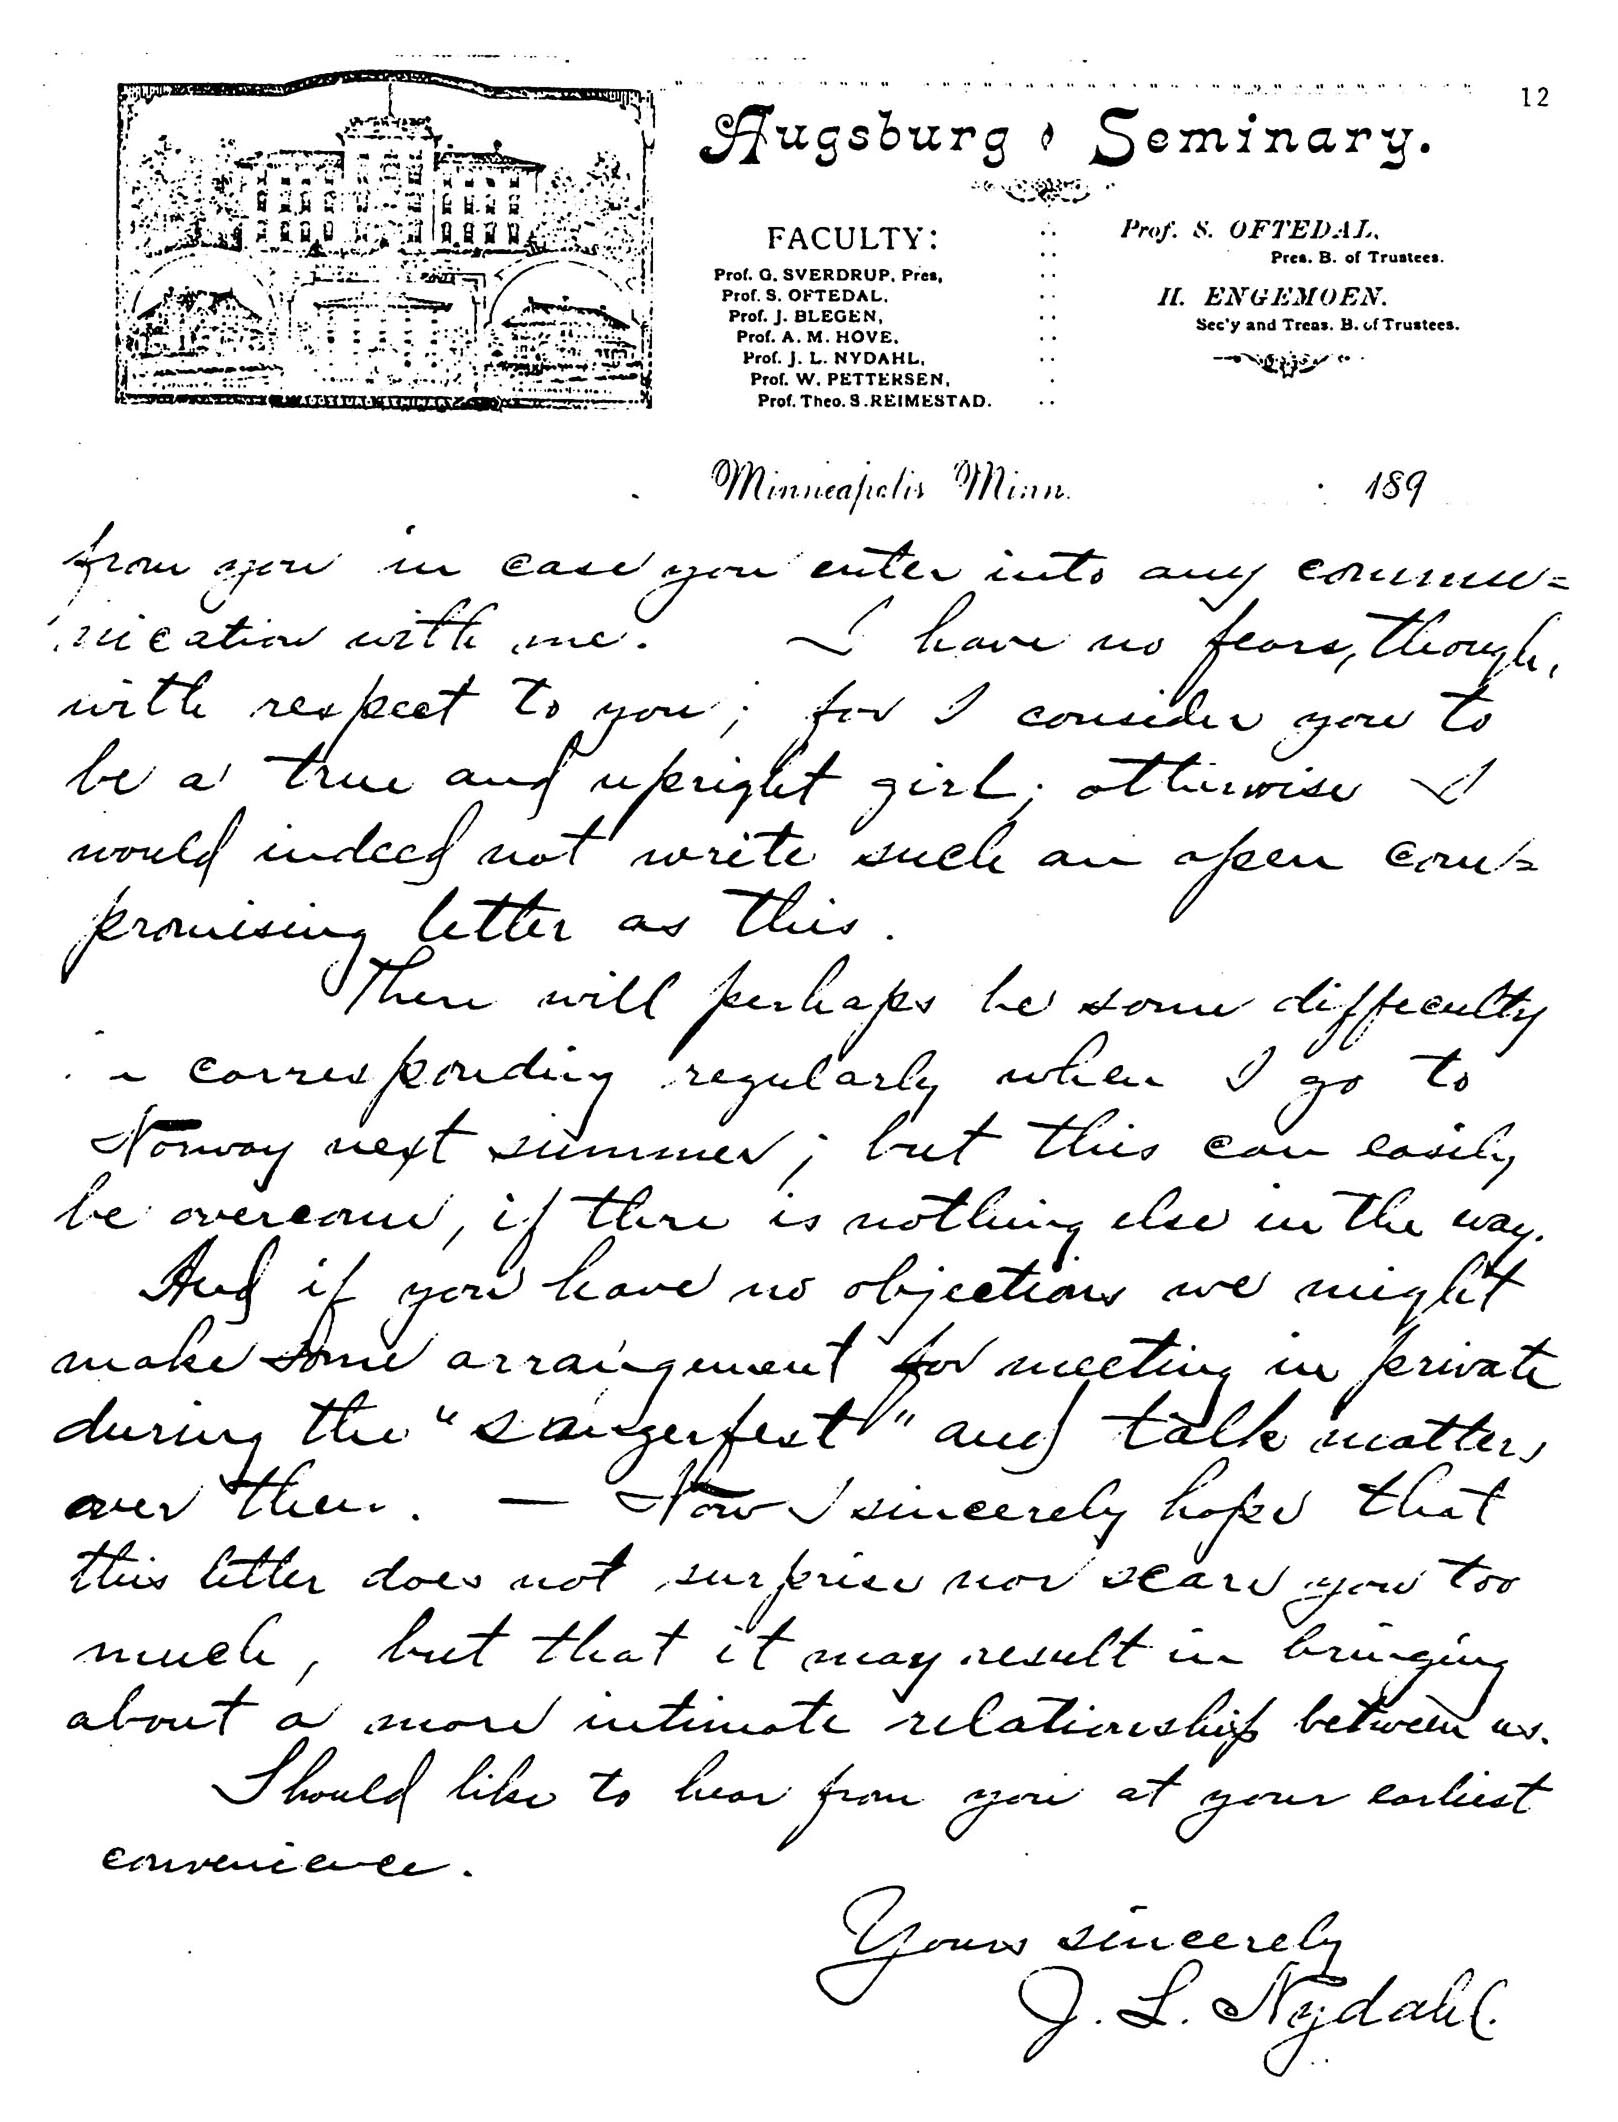 12
Augsburg Seminary.
FACULTY:
Prof. G. SVERDRUP, Pres,
Prof. S. OFTEDAL,
Prof. J. BLEGEN,
Prof. A. M. HOVE,
Prof. J. L. NYDAHL,
Prof. W. PETTERSEN,
Prof. Theo. S. REIMESTAD.
Prof. S. OFTEDAL,
Pres. B. of Trustees.
H. ENGEMOEN.
Sec'y and Treas. B. of Trustees.
AUGSBURG SEMINARY
Minneapolis Minn. 189
from you in case you enter into any commu=
nication with me. I have no fears, though,
with respect to you; for I consider you to
be a true and upright girl; otherwise I
would indeed not write such an open com=
promising letter as this.
There will perhaps be some difficulty
in corresponding regularly when I go to
Norway next summer; but this can easily
be overcome, if there is nothing else in the way.
And if you have no objections we might
make some arrangement for meeting in private
during the "sangerfest" and talk matters
over then. — Now I sincerely hope that
this letter does not surprise nor scare you too
much, but that it may result in bringing
about a more intimate relationship between us.
Should like to hear from you at your earliest
convenience.
Yours sincerely
J. L. Nydahl.